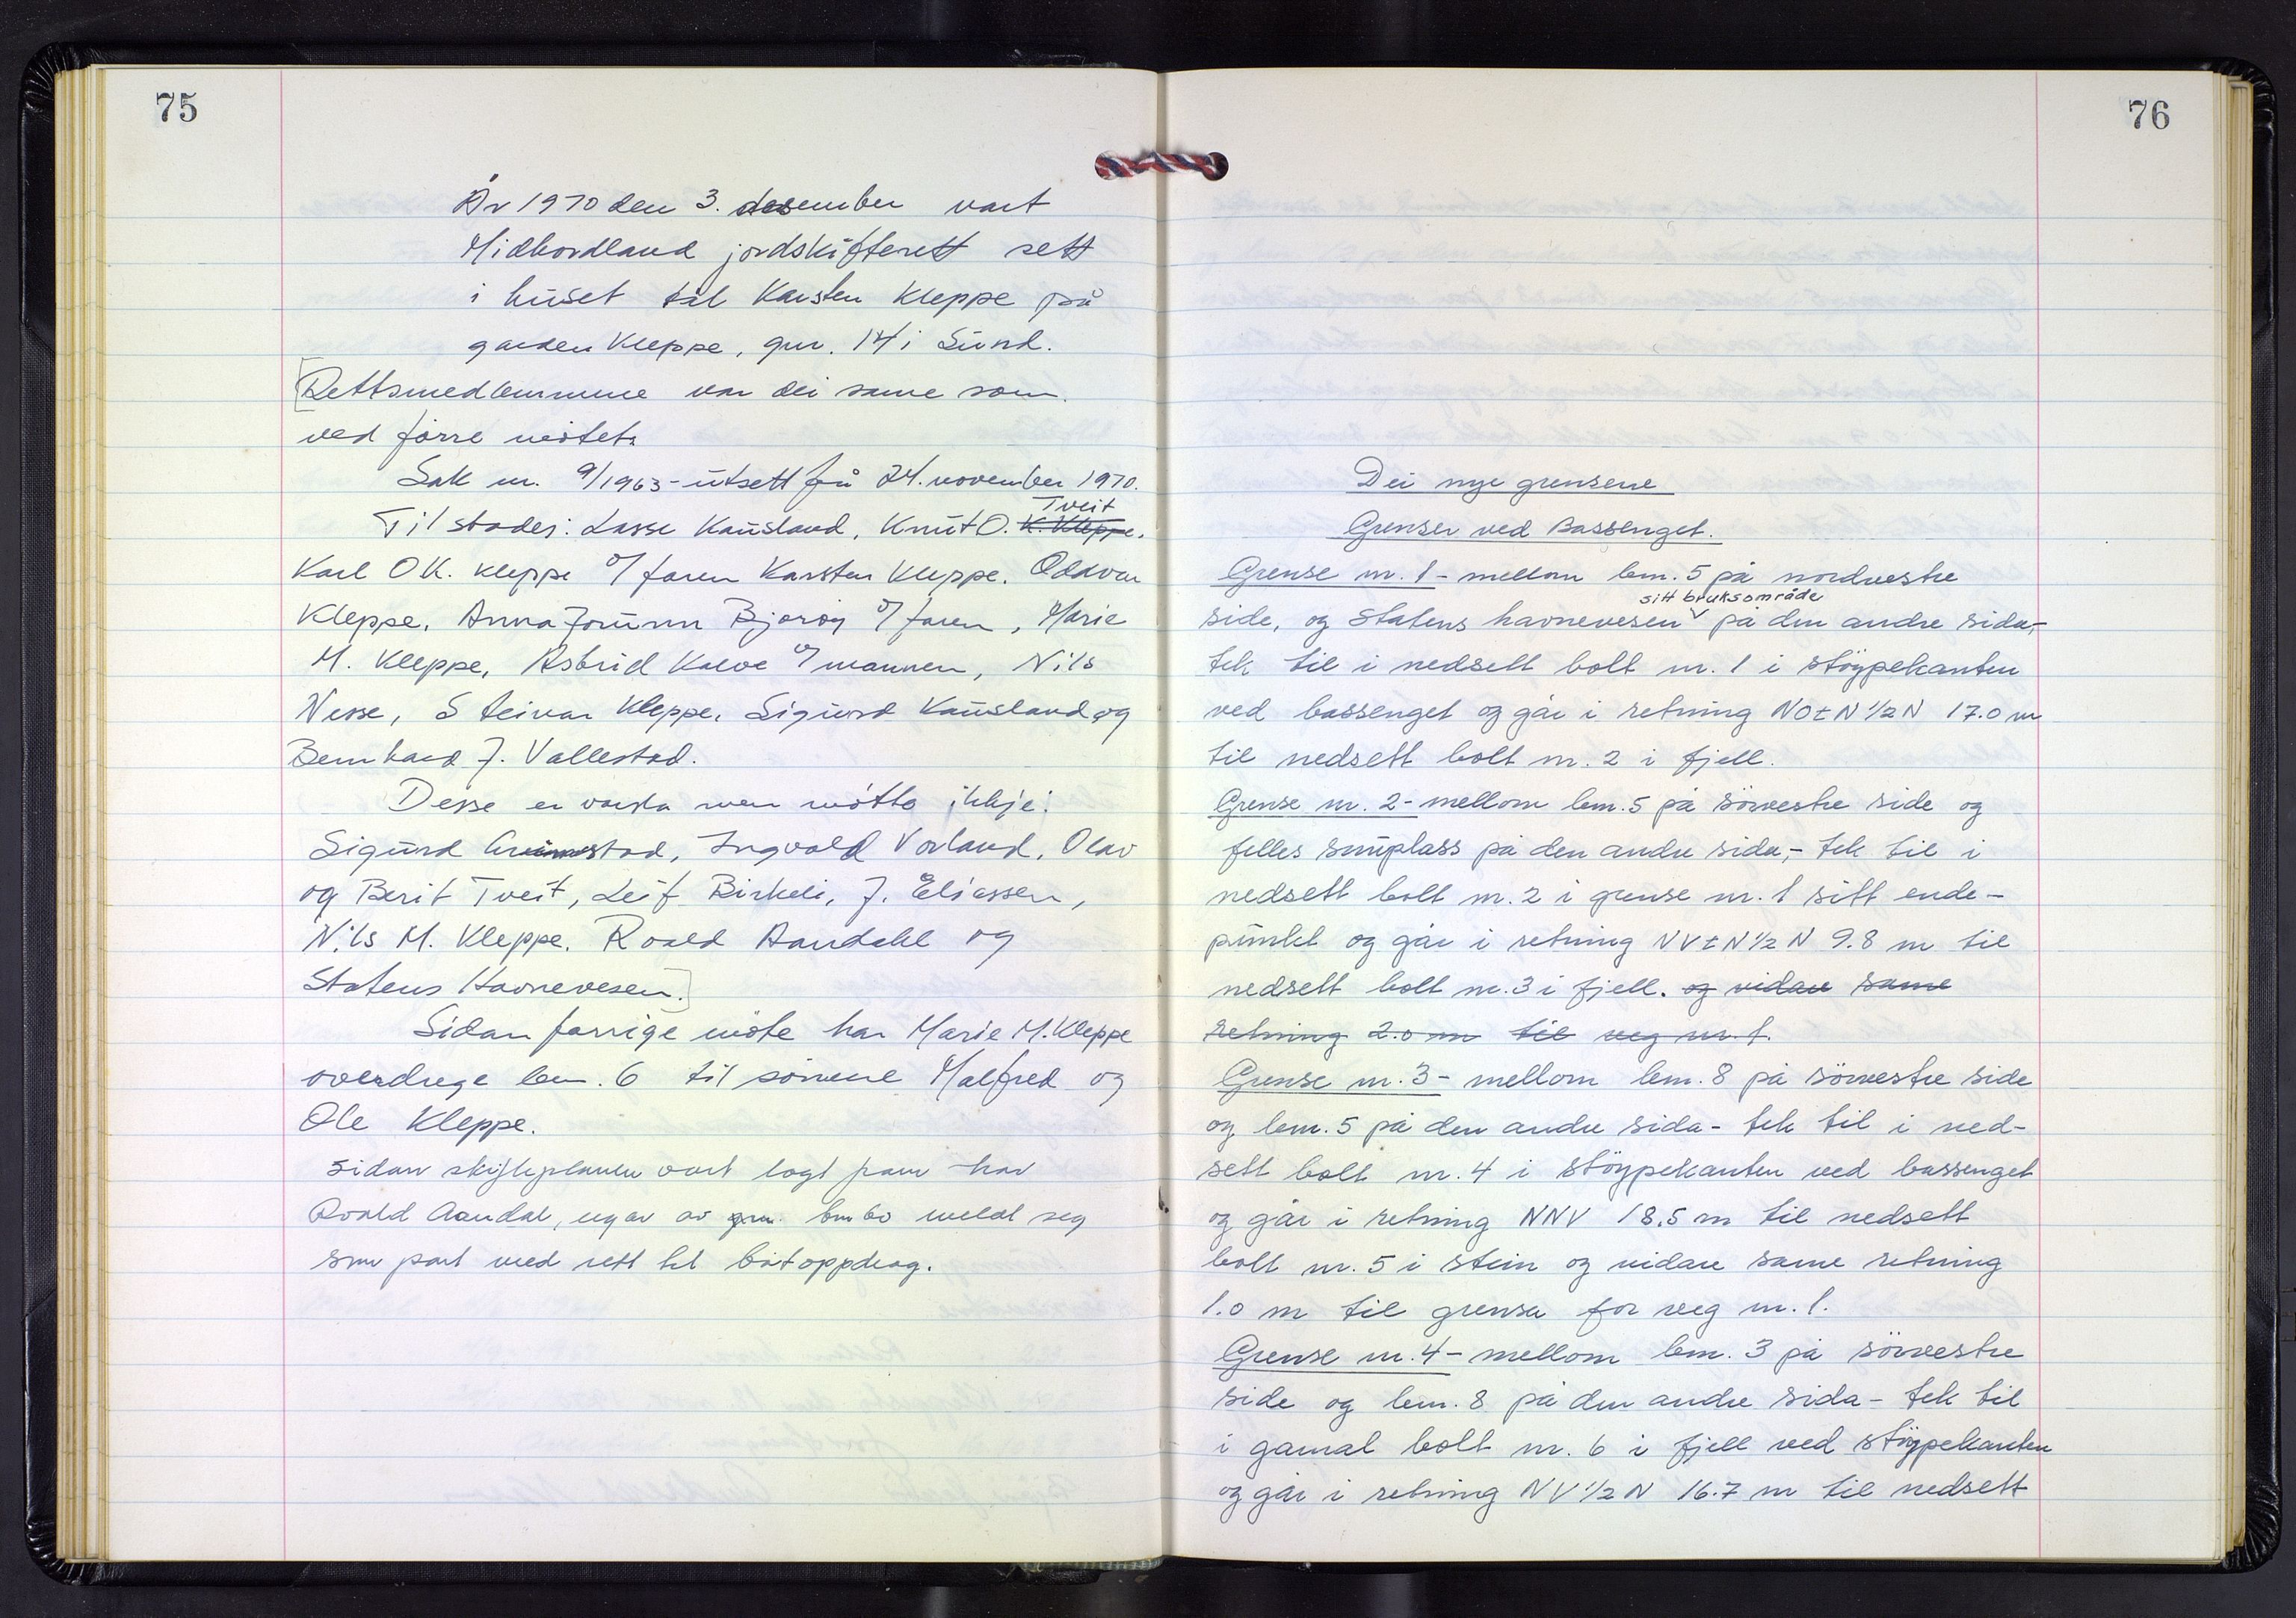 75
År 1970 den 3. desember vart
Midhordland jordskifterett sett
i huset til Karsten Kleppe på
garden Kleppe, gnr. 14 i Sund.
[Rettsmedlemmene var dei same som
ved förre mötet.
Sak nr. 9/1963 - utsett frå 24. november 1970.
Tveit
Til stades: Lasse Kausland, Knut O. K. Kleppe.
Karl O K. Kleppe v/ faren Karsten Kleppe. Oddvar
Kleppe, Anna Jorunn Bjoröy v/ faren, Marie
M. Kleppe, Astrid Kalve v/ mannen, Nils
Nesse, Steinar Kleppe, Sigurd Kausland og
Bernhard J. Vallestad.
Desse er varsla men mötte ikkje:
Sigurd Grimstad, Ingvald Vorland, Olav
og Berit Tveit, Leif Birkeli, J. Eliassen,
Nils M. Kleppe, Roald Aandahl og
Statens Havnevesen.]
Sidan forrige möte har Marie M. Kleppe
overdrege bnr. 6 til sönene Malfred og
Ole Kleppe.
Sidan skifteplanen vart lagt fram har
Roald Aandal, eigar av gnr. bnr 60 meldt seg
som part med rett til båtoppdrag.
76
Dei nye grensene
Grenser ved Bassenget.
Grense nr. 1 - mellom bnr. 5 på nordvestre
sitt bruksområde
side, og Statens havnevesen på den andre sida,-
tek til i nedsett bolt nr. 1 i stöypekanten
ved bassenget og går i retning NOtN 1/2 N 17.0 m
til nedsett bolt nr. 2 i fjell.
Grense nr. 2 - mellom bnr. 5 på sörvestre side og
felles snuplass på den andre sida,- tek til i
nedsett bolt nr. 2 i grense nr. 1 sitt ende-
punkt og går i retning NVtN 1/2 N 9.8 m til
nedsett bolt nr. 3 i fjell. og vidare same
retning 2.0 m til veg nr. 1.
Grense nr. 3 - mellom bnr. 8 på sörvestre side
og bnr. 5 på den andre sida - tek til i ned-
sett bolt nr. 4 i stöypekanten ved bassenget
og går i retning NNV 18.5 m til nedsett
bolt nr. 5 i stein og vidare same retning
1.0 m til grensa for veg nr. 1.
Grense nr. 4 - mellom bnr. 3 på sörvestre
side og bnr. 8 på den andre sida - tek til
i gamal bolt nr. 6 i fjell ved stöypekanten
og går i retning NV 1/2 N 16.7 m til nedsett